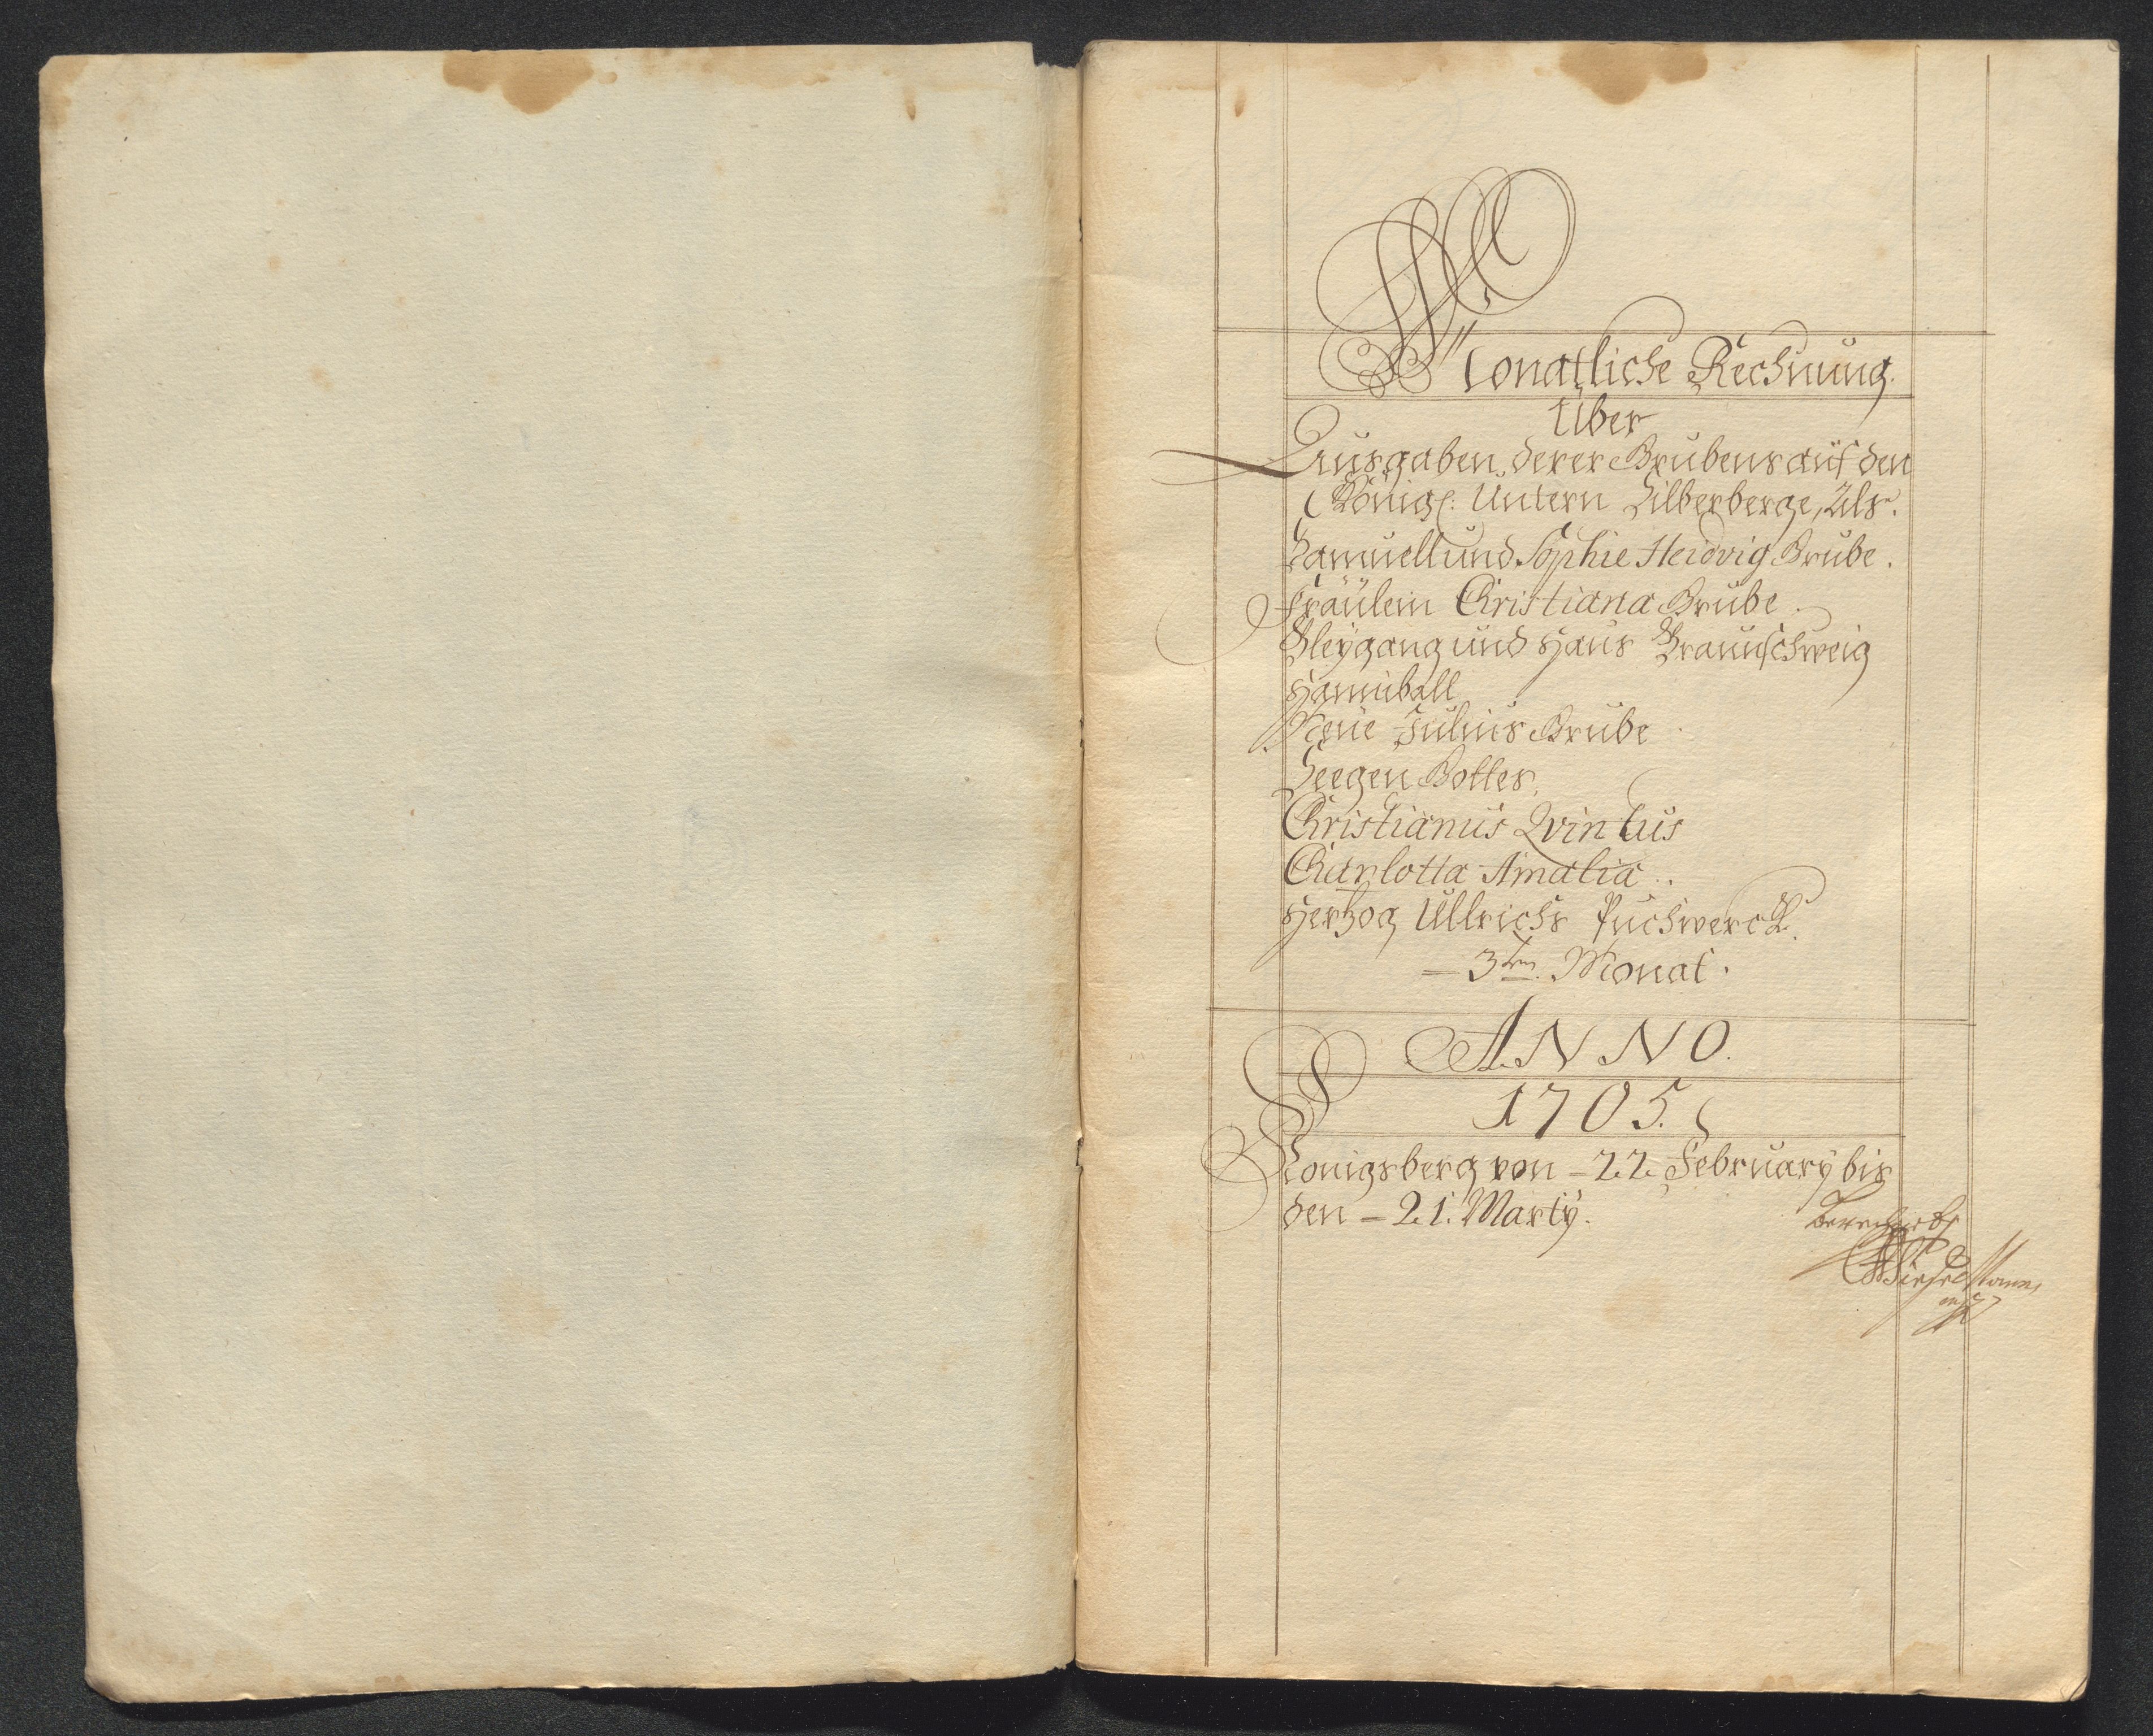 Monatliche Rechnung.
Über
Ausgaben derer Grubens auf den
Königl: Untern Silberberge, Als.
Samuell und Sophie Hedvig Grube.
Fräulein Christiana Grube.
Bleygang und Haus Braunschweig
Hanniball
Neue Julius Grube
Seegen Gottes.
Christianus Qvintus
Charlotta Amalia.
Hertzog Ullrichs Puchwerck.
3ten. Monat.
ANNO.
1705.
Konigsberg von 22. February bis
den 21. Marty.